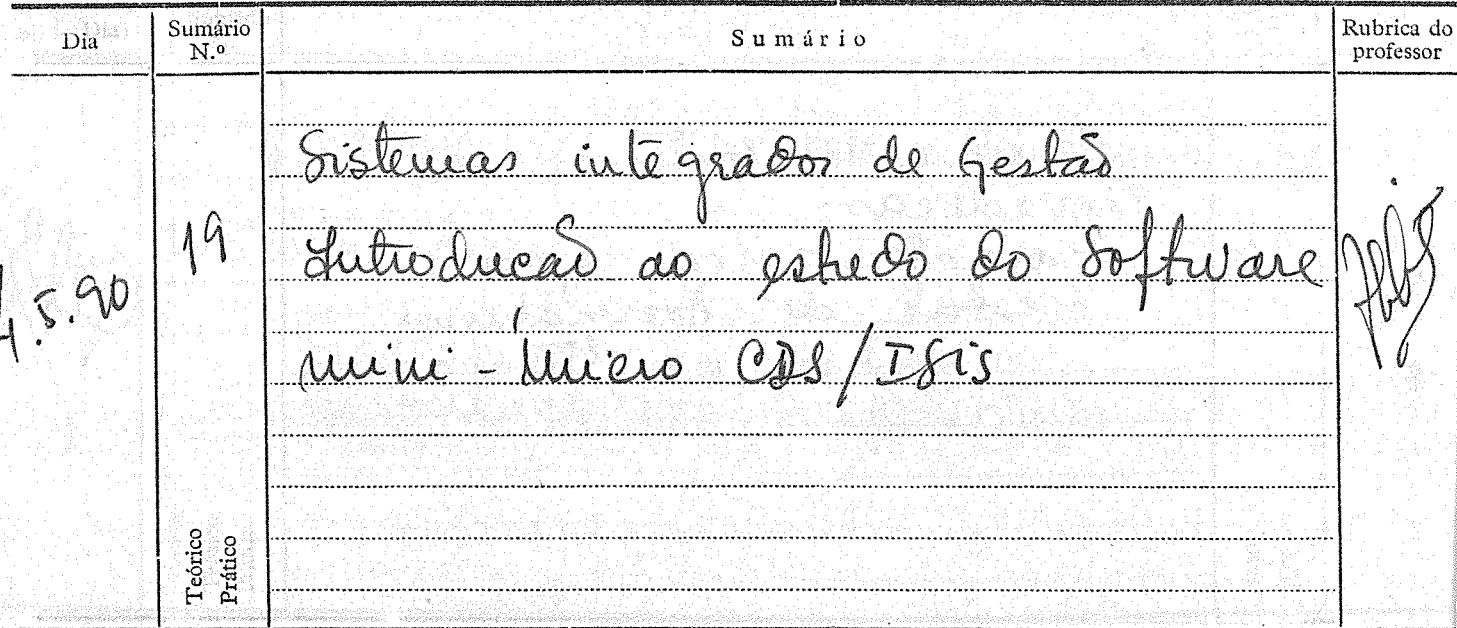 Dia
Sumário N.º
Sumário
Rubrica do professor
Sistemas integrados de Gestão
19
Introducão ao estudo do Software
4.5.90
mini - Micro CDS/ISis
Teórico
Prático